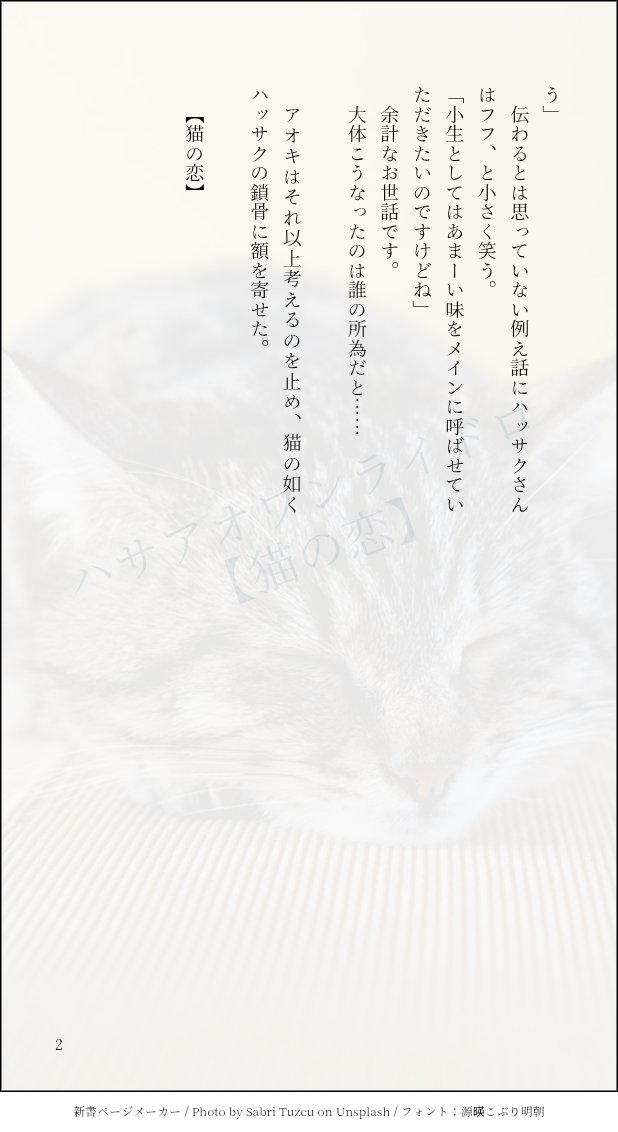 う」
　伝わるとは思っていない例え話にハッサクさん
はフフ、と小さく笑う。
「小生としてはあまーい味をメインに呼ばせてい
ただきたいのですけどね」
　余計なお世話です。
　大体こうなったのは誰の所為だと……
　アオキはそれ以上考えるのを止め、猫の如く
ハッサクの鎖骨に額を寄せた。
【猫の恋】
ハサアオワンライドロ
【猫の恋】
2
新書ページメーカー / Photo by Sabri Tuzcu on Unsplash / フォント：源暎こぶり明朝